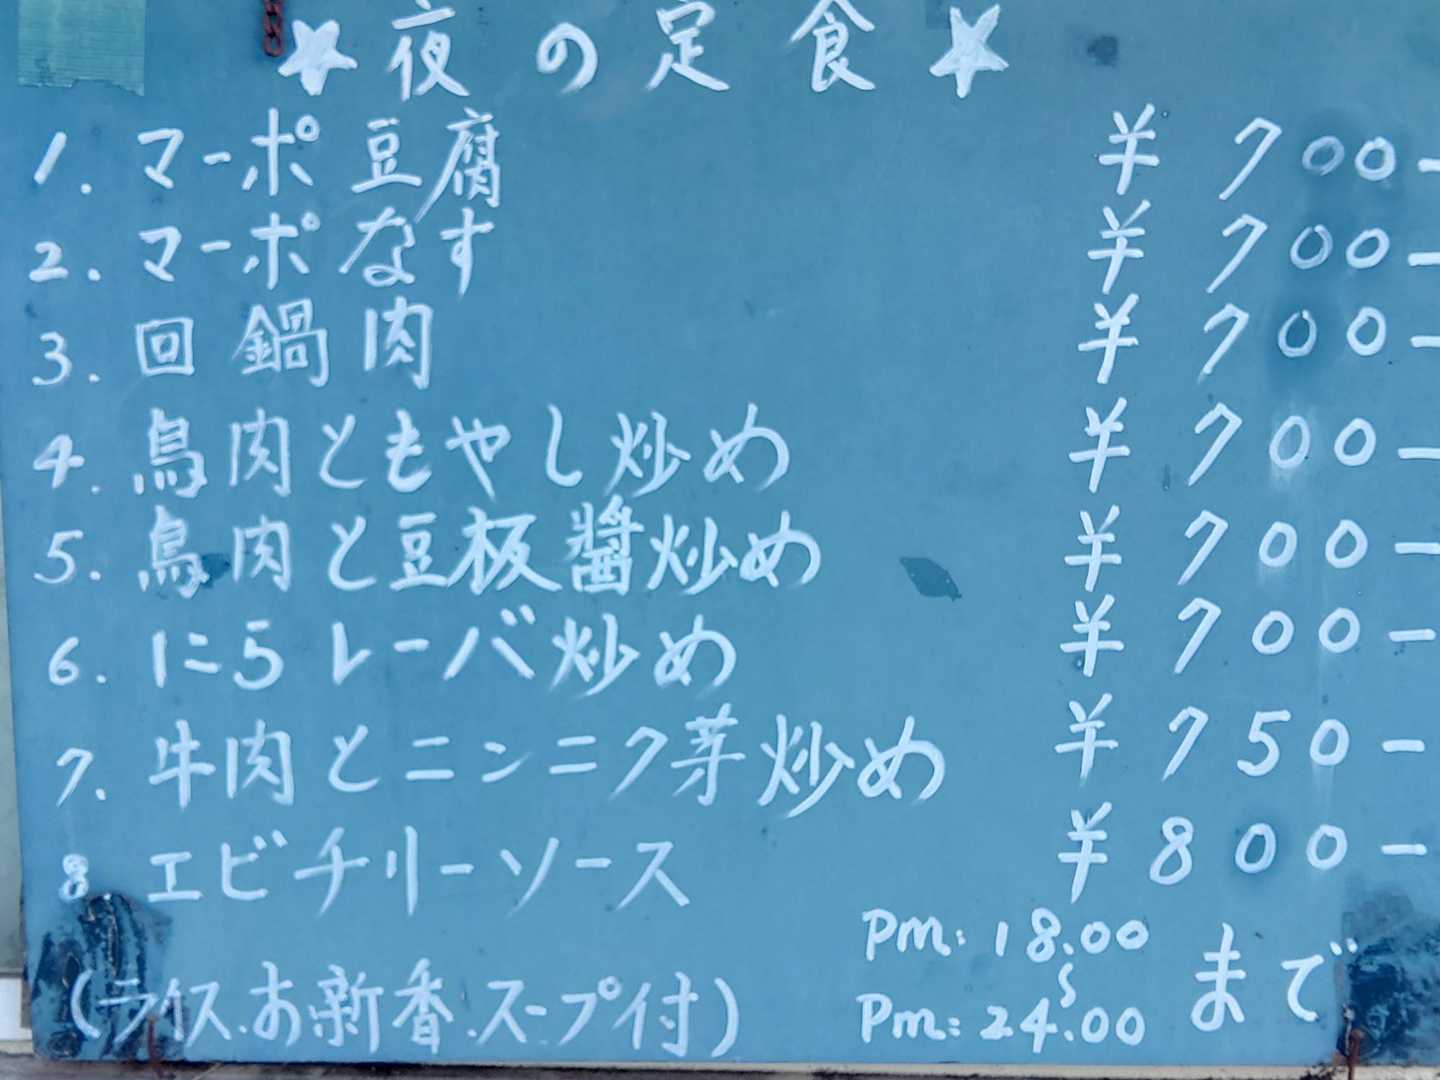 ☆夜の定食☆
1. マーポ豆腐 ¥700-
2. マーポなす ¥700-
3. 回鍋肉 ¥700-
4. 鳥肉ともやし炒め ¥700-
5. 鳥肉と豆板醤炒め ¥700-
6. にらレーバ炒め ¥700-
7. 牛肉とニンニク芽炒め ¥750-
8. エビチリーソース ¥800-
(ライス.お新香.スープ付)
Pm: 18.00
~
Pm: 24.00 まで